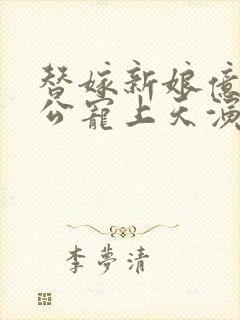 替嫁新娘億
公寵上天演
李夢清